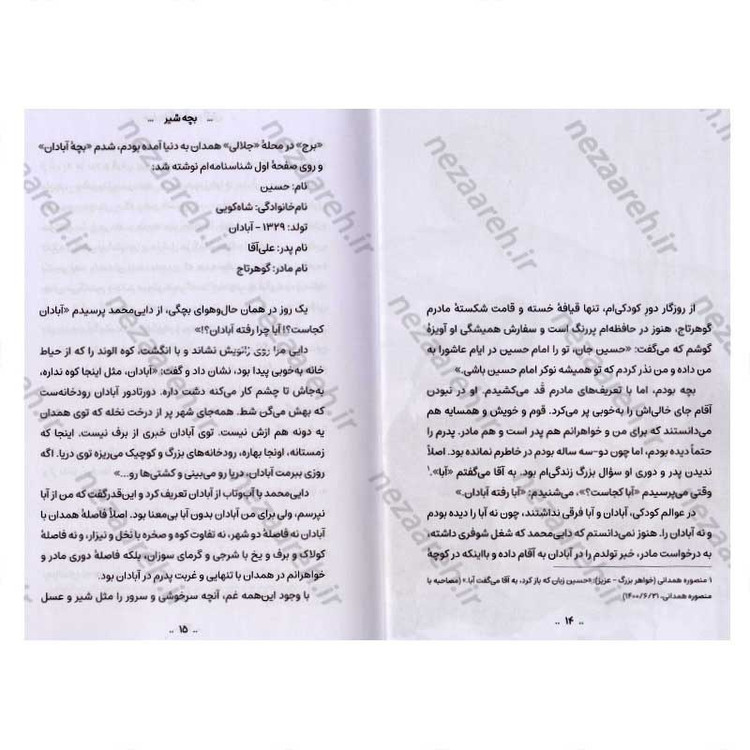 از روزگار دورِ کودکی‌ام، تنها قیافهٔ خسته و قامت شکستهٔ مادرم
گوهرتاج، هنوز در حافظه‌ام پررنگ است و سفارش همیشگی او آویزهٔ
گوشم که می‌گفت: «حسین جان، تو را امام حسین در ایام عاشورا به
من داده و من نذر کردم که تو همیشه نوکر امام حسین باشی.»
بچه بودم، اما با تعریف‌های مادرم قَد می‌کشیدم. او در نبودن
آقام جای خالی‌اش را به‌خوبی پر می‌کرد. قوم و خویش و همسایه هم
می‌دانستند که برای من و خواهرانم هم پدر است و هم مادر. پدرم را
حتماً دیده بودم، اما چون دو-سه ساله بودم در خاطرم نمانده بود. اصلاً
ندیدن پدر و دوری او سؤال بزرگ زندگی‌ام بود. به آقا می‌گفتم «آبا».۱
وقتی می‌پرسیدم «آبا کجاست؟»، می‌شنیدم: «آبا رفته آبادان.»
در عوالم کودکی، آبادان و آبا فرقی نداشتند، چون نه آبا را دیده بودم
و نه آبادان را. هنوز نمی‌دانستم که دایی‌محمد که شغل شوفری داشته،
به درخواست مادر، خبر تولدم را در آبادان به آقام داده و بااینکه در کوچهٔ
۱ منصوره همدانی (خواهر بزرگ - عزیز): «حسین زبان که باز کرد، به آقا می‌گفت آبا.» (مصاحبه با
منصوره همدانی، ۱۴۰۰/۶/۲۱)
.. ۱۴ ..
... بچه شیر ...
«برج» در محلهٔ «جلالی» همدان به دنیا آمده بودم، شدم «بچهٔ آبادان»
و روی صفحهٔ اول شناسنامه‌ام نوشته شد:
نام: حسین
نام‌خانوادگی: شاه‌کویی
تولد: ۱۳۲۹ - آبادان
نام پدر: علی‌آقا
نام مادر: گوهرتاج
یک روز در همان حال‌وهوای بچگی، از دایی‌محمد پرسیدم «آبادان
کجاست؟! آبا چرا رفته آبادان؟!»
دایی مرا روی زانویش نشاند و با انگشت، کوه الوند را که از حیاط
خانه به‌خوبی پیدا بود، نشان داد و گفت: «آبادان، مثل اینجا کوه نداره،
به‌جاش تا چشم کار می‌کنه دشت داره. دورتادور آبادان رودخانه‌ست
که بهش می‌گن شط. همه‌جای شهر پر از درخت نخله که توی همدان
یه دونه هم ازش نیست. توی آبادان خبری از برف نیست. اینجا که
زمستانه، اونجا بهاره، رودخانه‌های بزرگ و کوچیک می‌ریزه توی دریا. اگه
روزی ببرمت آبادان، دریا رو می‌بینی و کشتی‌ها رو...»
دایی‌محمد با آب‌وتاب از آبادان تعریف کرد و این‌قدرگفت که من از آبا
نپرسم، ولی برای من آبادان بدون آبا بی‌معنا بود. اصلاً فاصلهٔ همدان با
آبادان نه فاصلهٔ دو شهر، نه تفاوت کوه و صخره با نخل و نیزار، و نه فاصلهٔ
کولاک و برف و یخ با شرجی و گرمای سوزان، بلکه فاصلهٔ دوری مادر و
خواهرانم در همدان با تنهایی و غربت پدرم در آبادان بود.
با وجود این‌همه غم، آنچه سرخوشی و سرور را مثل شیر و عسل
.. ۱۵ ..
nezaareh.ir
nezaareh.ir
nezaareh.ir
nezaareh.ir
nezaareh.ir
nezaareh.ir
nezaareh.ir
nezaareh.ir
nezaareh.ir